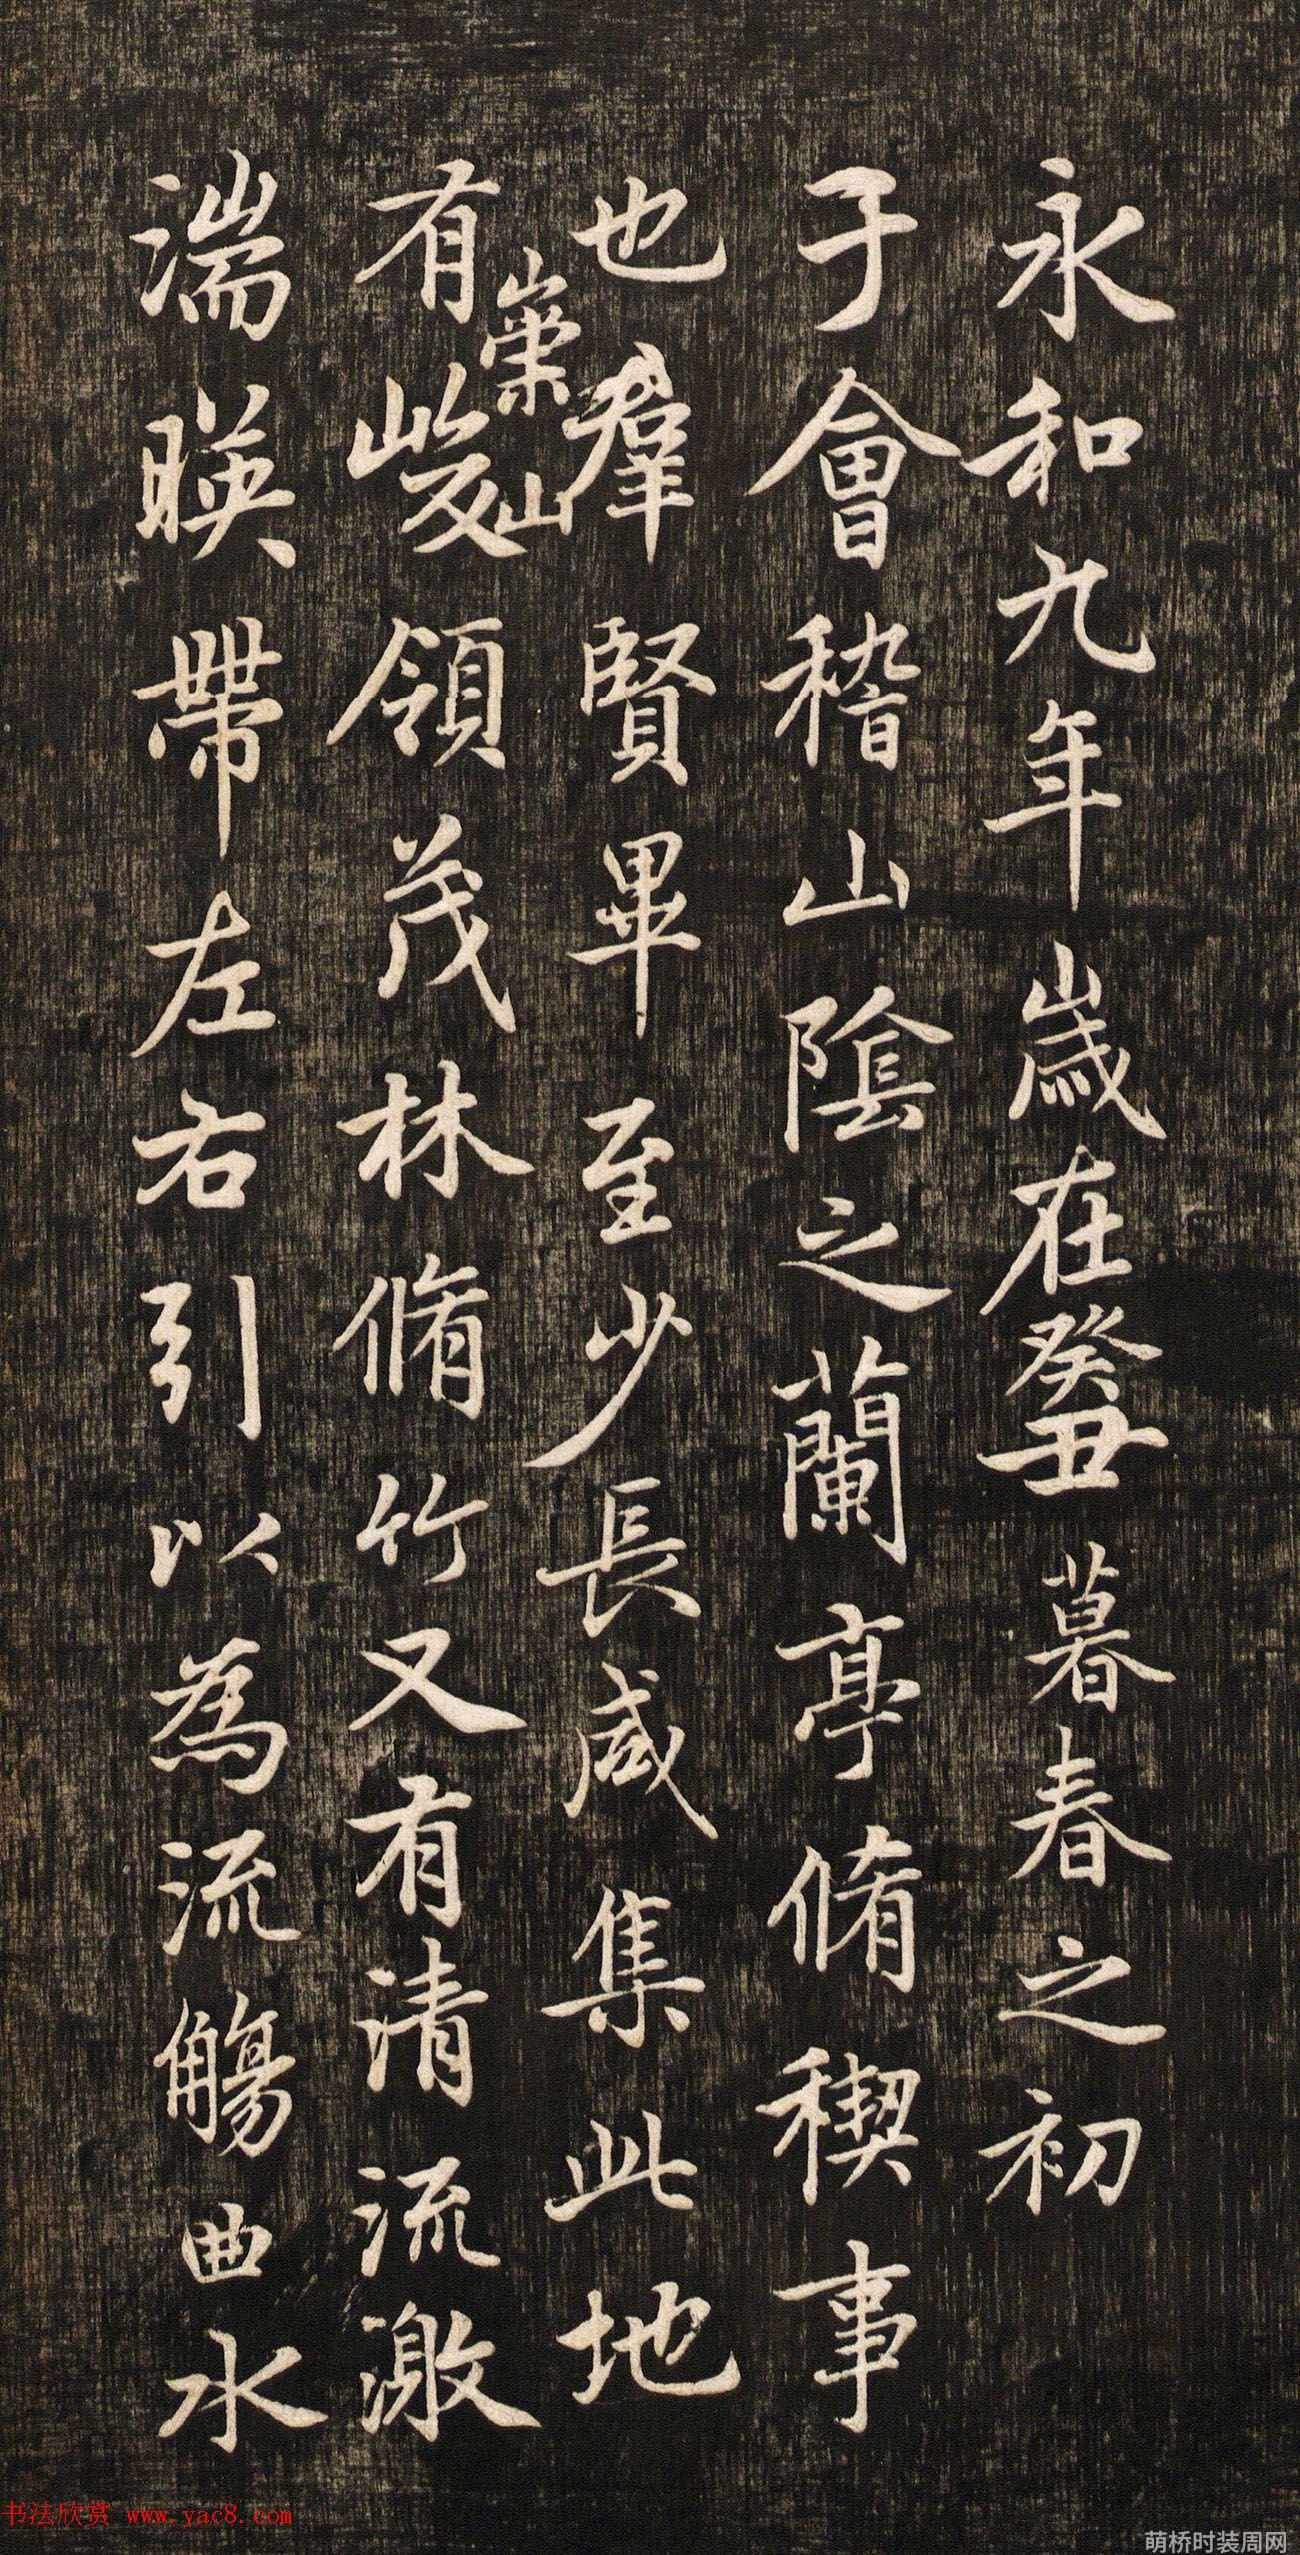 永和九年歲在癸丑暮春之初
于會稽山陰之蘭亭脩稧事
也羣賢畢至少長咸集此地
有崇山峻領茂林脩竹又有清流激
湍暎帶左右引以為流觴曲水
书法欣赏 www.yac8.com
萌桥时装周网